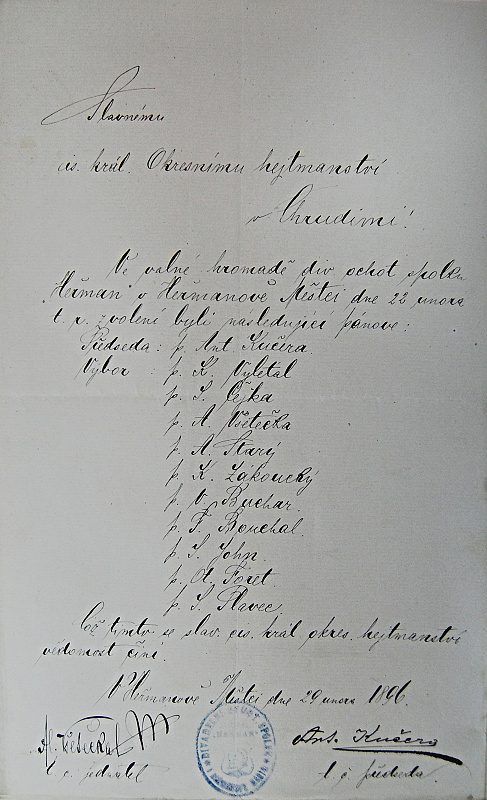 Slavnému
cis. král. Okresnímu hejtmanství
v Chrudimi!
Ve valné hromadě div. ochot. spolku
"Heřman" v Heřmanově Městci dne 22 února
t. r. zvoleni byli následující pánové:
Předseda: p. Ant. Kučera.
Výbor : p. K. Vyletal
p. J. Čejka
p. A. Všetečka
p. A. Starý
p. K. Zákoucký
p. V. Buchar.
p. F. Bouchal.
p. J. John.
p. A. Foret.
p. J. Slavec.
Což tímto se slav. cis. král. okres. hejtmanství
vědomost činí.
V Heřmanově Městci dne 29 února 1896.
Ant. Kučera
t. č. jednatel
t. č. předseda.